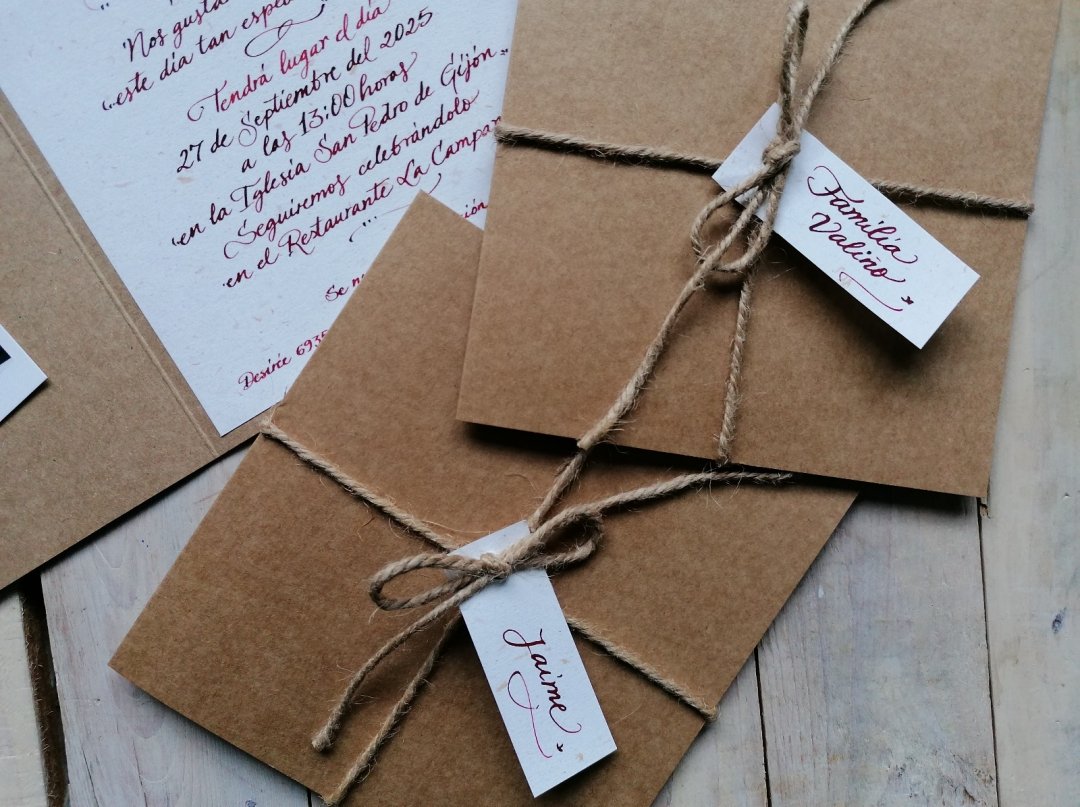 "Nos gusta
este día tan espe
Tendrá lugar el día
27 de Septiembre del 2025
a las 13:00 horas
en la Iglesia San Pedro de Gijón
Seguiremos celebrándolo
en el Restaurante La Campan
ción
Se
Desirée 693
Familia
Valiño
Jaime